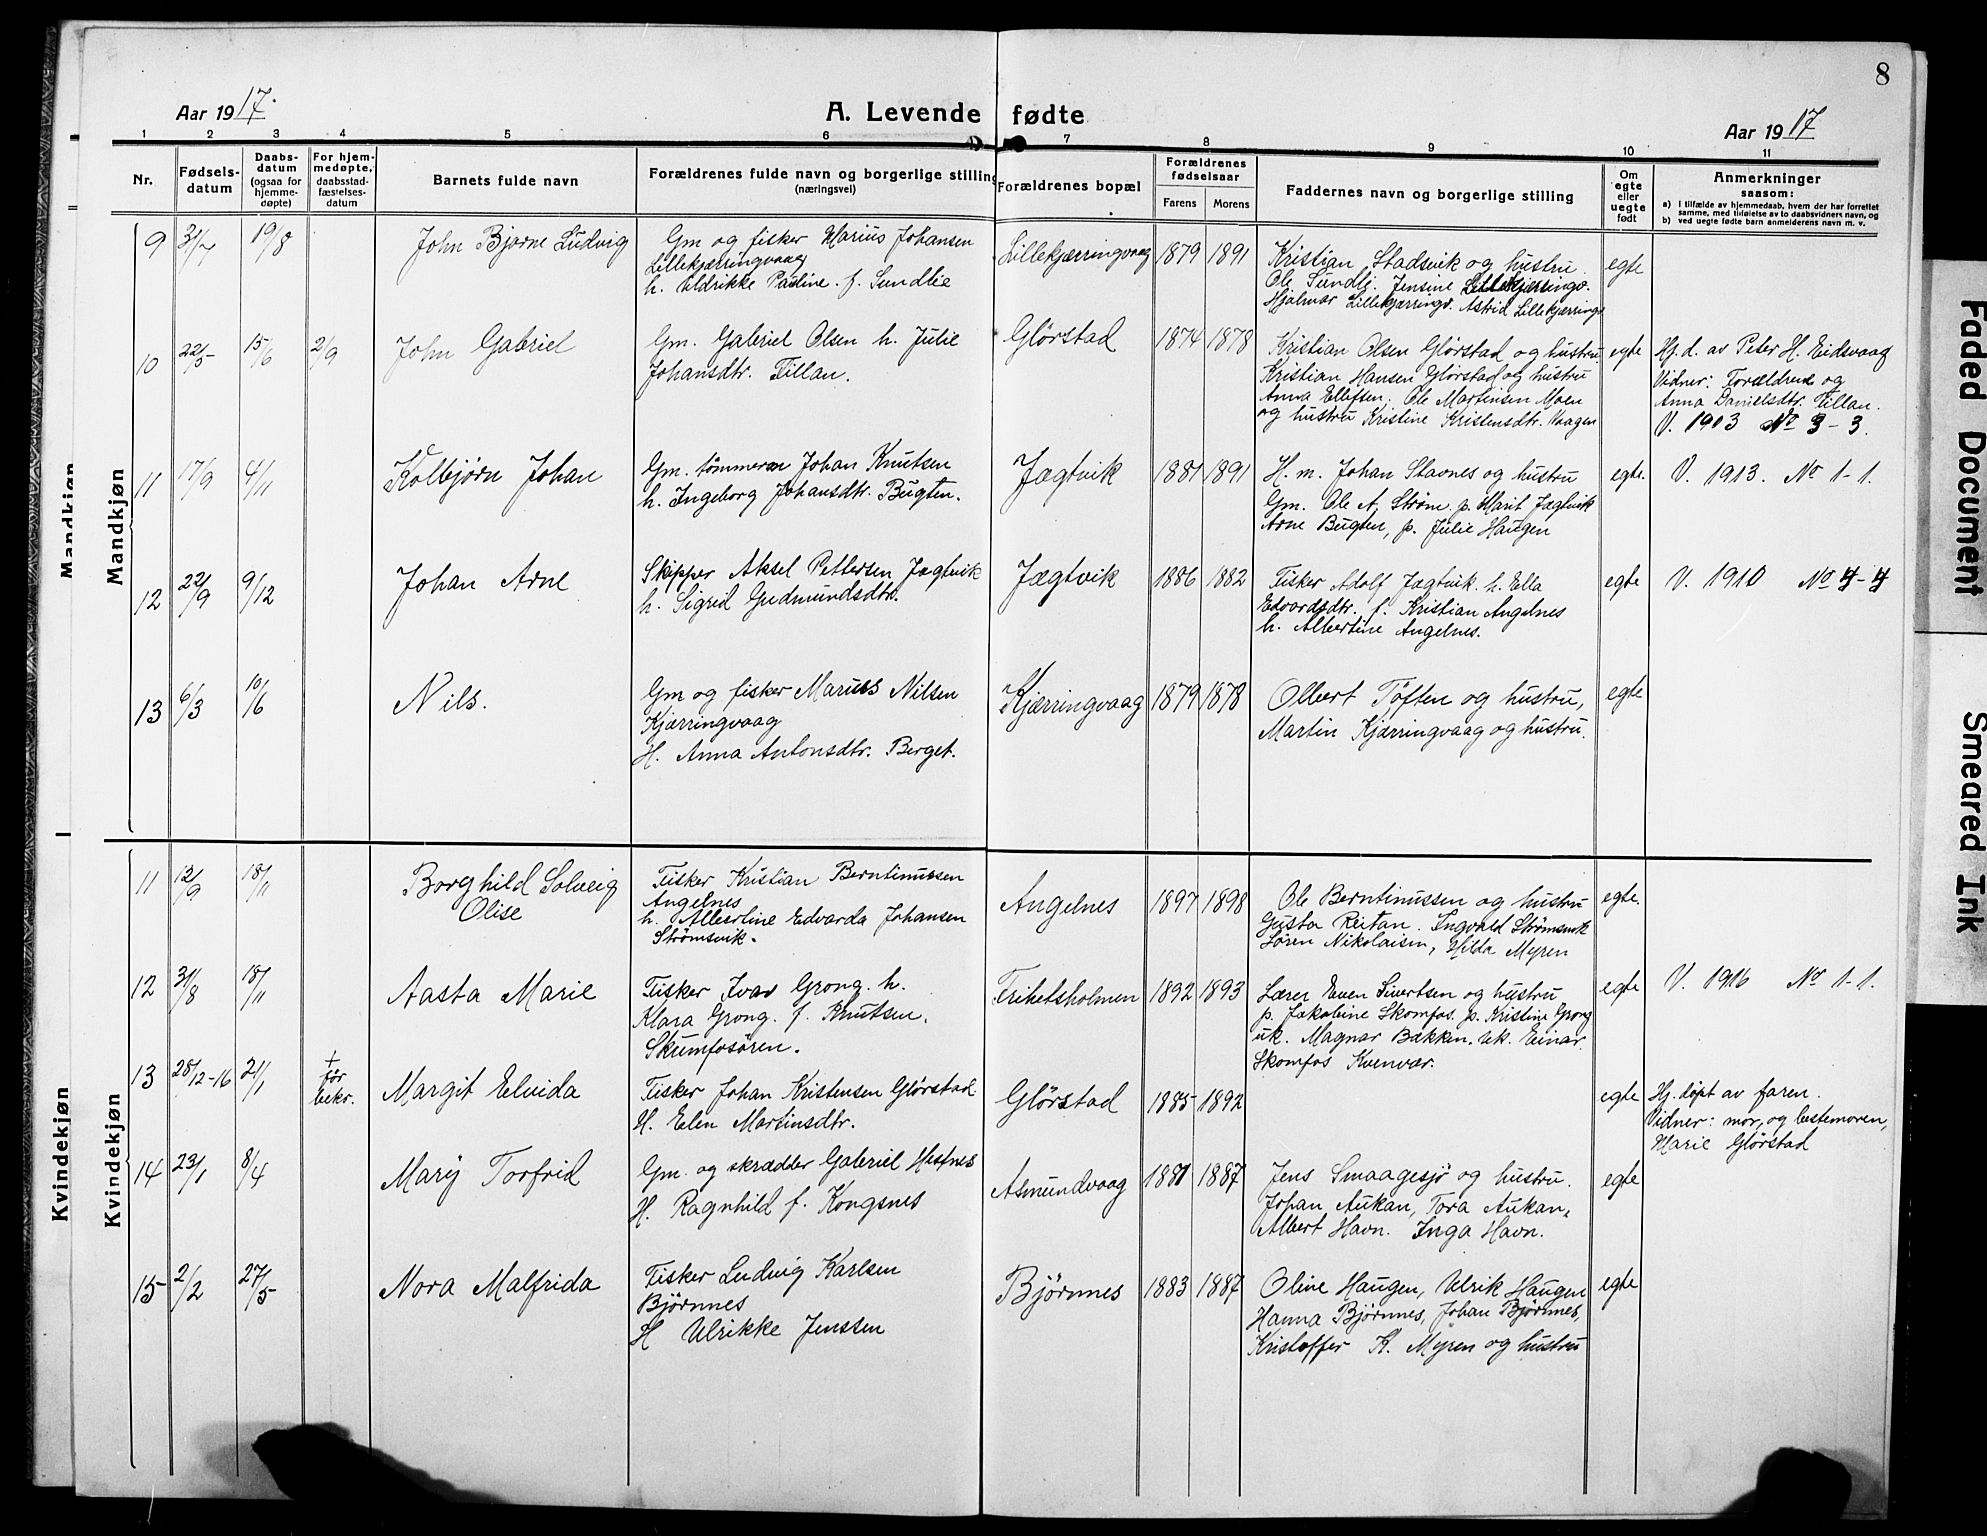 8
Aar 1917.
A. Levende fødte
Aar 1917
1 2 3 4 5 6 7 8 9 10 11
Nr.
Fødsels-
datum
Daabs-
datum
(ogsaa for
hjemme-
døpte)
For hjem-
medøpte,
daabsstad-
fæstelses-
datum
Barnets fulde navn
Forældrenes fulde navn og borgerlige stilling
(næringsvei)
Forældrenes bopæl
Forældrenes
fødselsaar
Farens Morens
Faddernes navn og borgerlige stilling
Om
egte
eller
uegte
født
Anmerkninger
saasom:
a) I tilfælde av hjemmedaab, hvem der har forrettet
samme, med tilføielse av to daabsvidners navn, og
b) ved uegte fødte barn anmelderens navn m. v.
Mandkjøn
Mandkjøn
9 31/7 19/8 John Bjarne Ludvig
Gm og fisker Marius Johansen
Lillekjærringvaag
h. Uldrikke Pauline. f. Sundlie
Lillekjærringvaag 1879 1891
Kristian Stadsvik og hustru.
Ole Sundli. Jensine Lillekjærringv.
Hjalmar Lillekjærringv. Astrid Lillekjærringv.
egte
10 22/5 15/6 2/9 John Gabriel
Gm. Gabriel Olsen h. Julie
Johansdtr. Tillan.
Glørstad 1874 1878
Kristian Olsen Glørstad og hustru
Kristian Hansen Glørstad og hustru
Anna Ellefsen. Ole Martinsen Moen
og hustru Kristine Kristensdtr. Vaagen
egte
Hj. d. av Peter H. Eidsvaag
Vidner: Forældrene og
Anna Danielsdtr. Tillan.
V. 1903 No 3-3.
11 17/9 4/11 Kolbjørn Johan
Gm. tømmerm Johan Knutsen
h. Ingeborg Johansdtr. Bugten.
Jægtvik 1881 1891
H. m. Johan Stavnes og hustru
Gm. Ole A. Strøm p. Marit Jægtvik
Arne Bugten, p. Julie Haugen
egte.
V. 1913. No 1-1.
12 22/9 9/12 Johan Arne
Skipper Aksel Pettersen Jægtvik
h. Sigrid Gudmundsdtr.
Jægtvik 1886 1882
Fisker Adolf Jægtvik h. Ella
Edvardsdtr. f. Kristian Angelnes
h. Albertine Angelnes.
egte
V. 1910 No 4-4
13 6/3 10/6 Nils.
Gm og fisker Marius Nilsen
Kjærringvaag
H. Anna Antonsdtr. Berget.
Kjærringvaag 1879 1878
Olbert Tøften og hustru,
Martin Kjærringvaag og hustru.
egte
Kvindekjøn
Kvindekjøn
11 12/9 18/11 Borghild Solveig
Olise
Fisker Kristian Berntinussen
Angelnes
h. Albertine Edvarda Johansen
Strømsvik.
Angelnes 1897 1898
Ole Berntinussen og hustru
Gusta Reitan. Ingvald Strømsvik
Søren Nikolaisen, Hilda Myren
egte.
12 31/8 18/11 Aasta Marie
Fisker Ivar Grong. h.
Klara Grong. f. Knutsen.
Skumfosøren.
Frihetsholmen 1892 1893
Lærer Even Sivertsen og hustru
p. Jakobine Skomfos. p. Kristine Grong
uk. Magnar Bakken. uk. Einar
Skomfos Kvenvær.
egte
V. 1916 No 1-1.
13 28/12-16 21/1
+
før
bekr.
Margit Elvida
Fisker Johan Kristensen Glørstad
H. Elen Martinsdtr.
Glørstad 1885 1892
egte
Hj. døpt av faren.
Vidner: mor, og bestemoren,
Marie Glørstad
14 23/1 8/4 Mary Torfrid
Gm. og skrædder Gabriel Hafnes
H. Ragnhild f. Kongsnes
Asmundvaag 1881 1887
Jens Smaagesjø og hustru.
Johan Aukan, Tora Aukan,
Albert Havn. Inga Havn.
egte
15 2/2 27/5 Nora Malfrida
Fisker Ludvig Karlsen
Bjørnnes
H Ulrikke Jenssen
Bjørnnes 1883 1887
Oline Haugen, Ulrik Haugen
Hanna Bjørnnes, Johan Bjørnnes,
Kristoffer K. Myren og hustru
egte
Faded Document
Smeared Ink